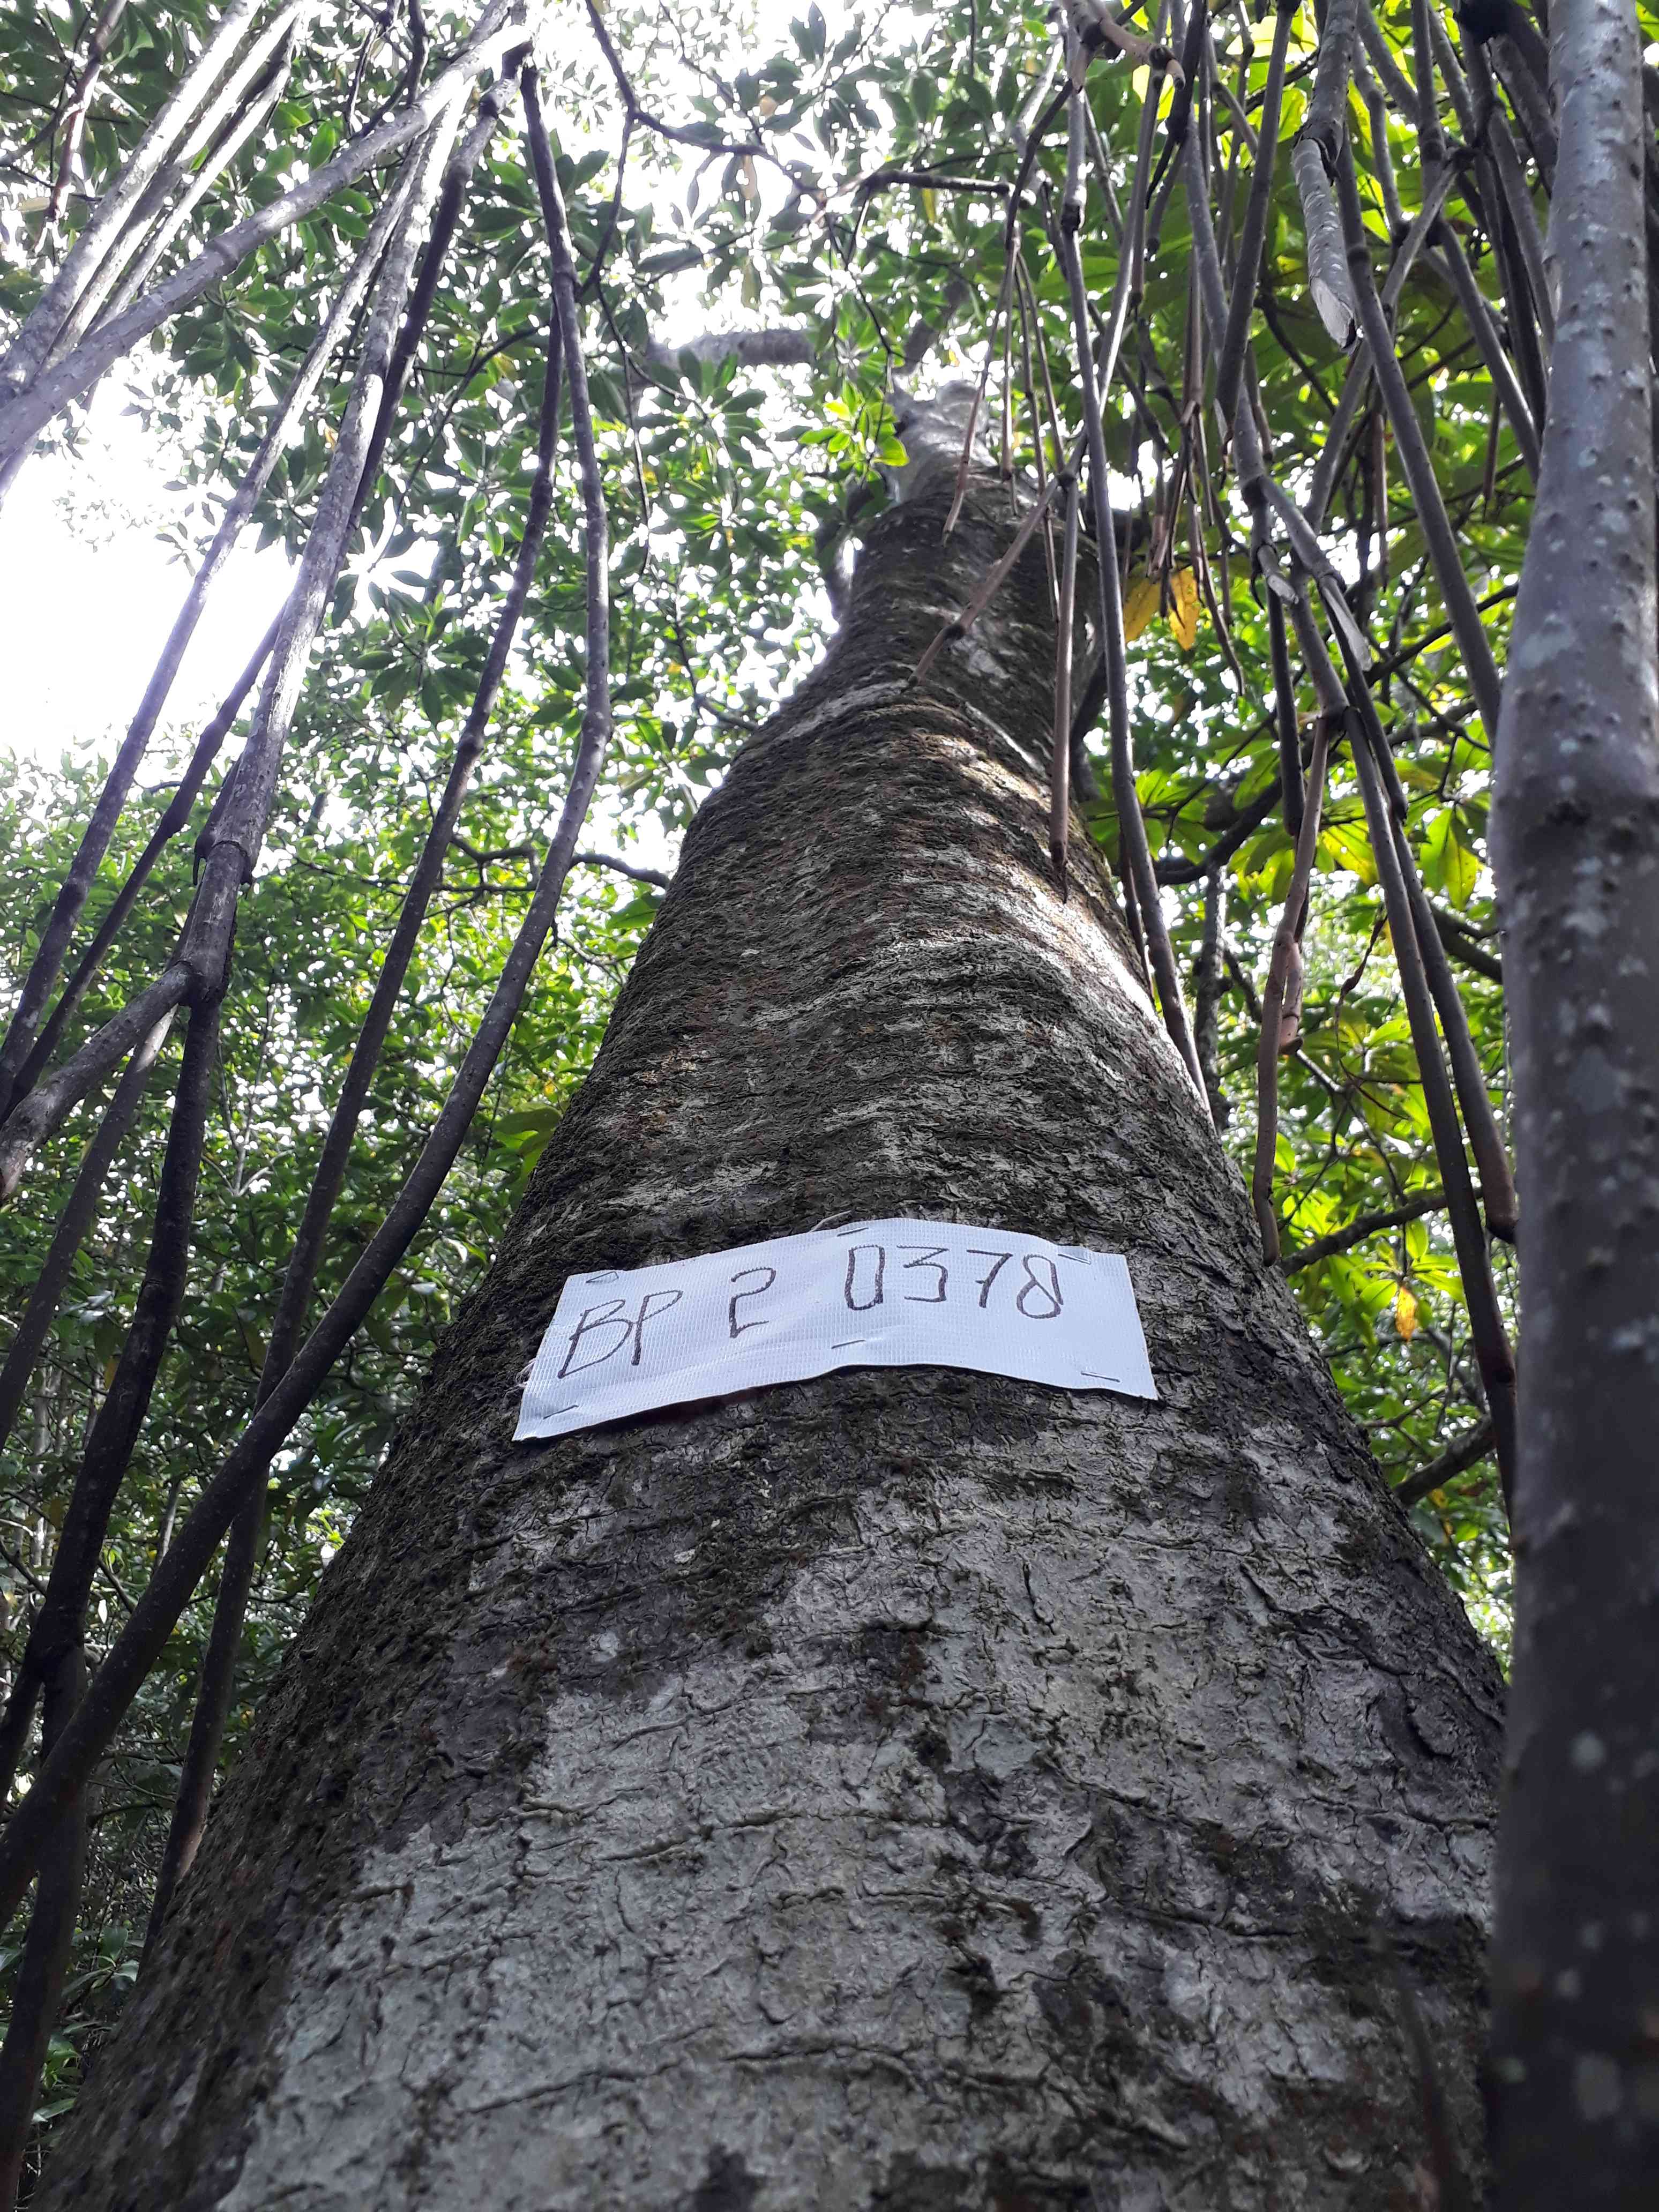 BP 2 0378